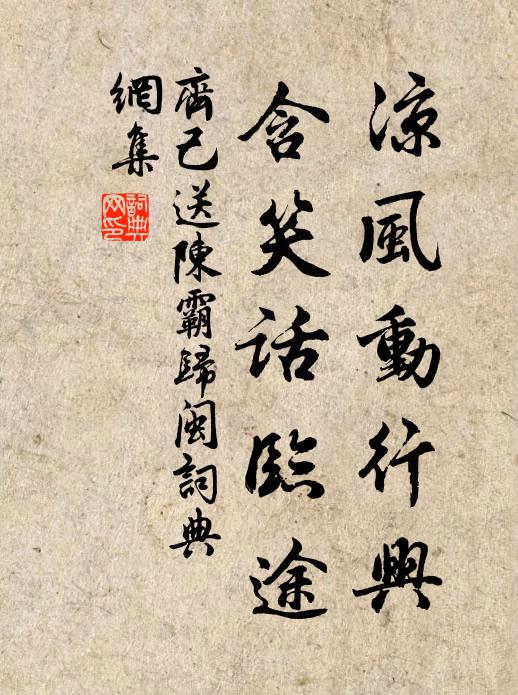 涼風動行興
含笑話臨途
齊己送陳霸歸閩詞典
網集
詞典網印